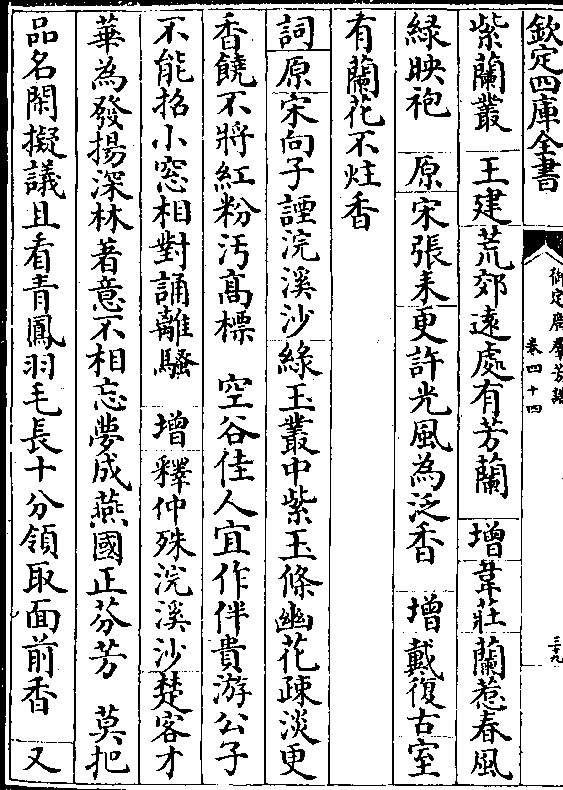 欽定四庫全書
御定廣羣芳譜
卷四十四
三十九
紫蘭叢　王建荒郊遠處有芳蘭　增韋莊蘭惹春風
綠映袍　原宋張耒更許光風為泛香　增戴復古室
有蘭花不炷香
詞原宋向子諲浣溪沙綠玉叢中紫玉條幽花疎淡更
香饒不將紅粉汚髙標　空谷佳人宜作伴貴游公子
不能招小窓相對誦離騷　增釋仲殊浣溪沙楚客才
華為發揚深林著意不相忘夢成燕國正芬芳　莫把
品名閑擬議且看青鳳羽毛長十分領取面前香　又